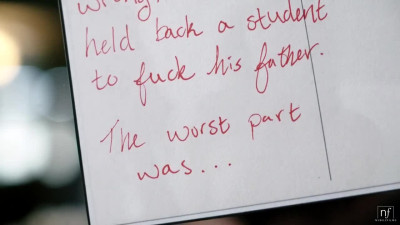 wrong
held back a student
to fuck his father.
The worst part
was...
nf